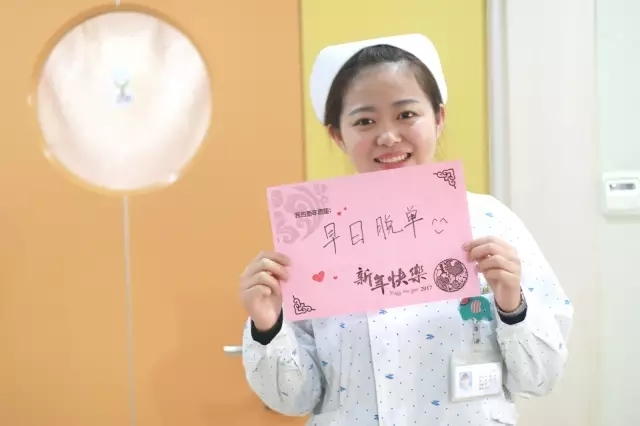 我的新年愿望:
早日脱单
新年快樂
Happy new year 2017